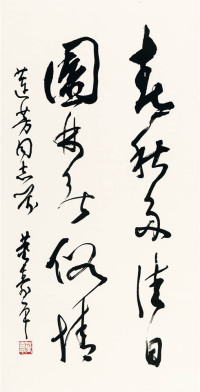 春秋多佳日
園林無俗情
蓮芳同志 董壽平